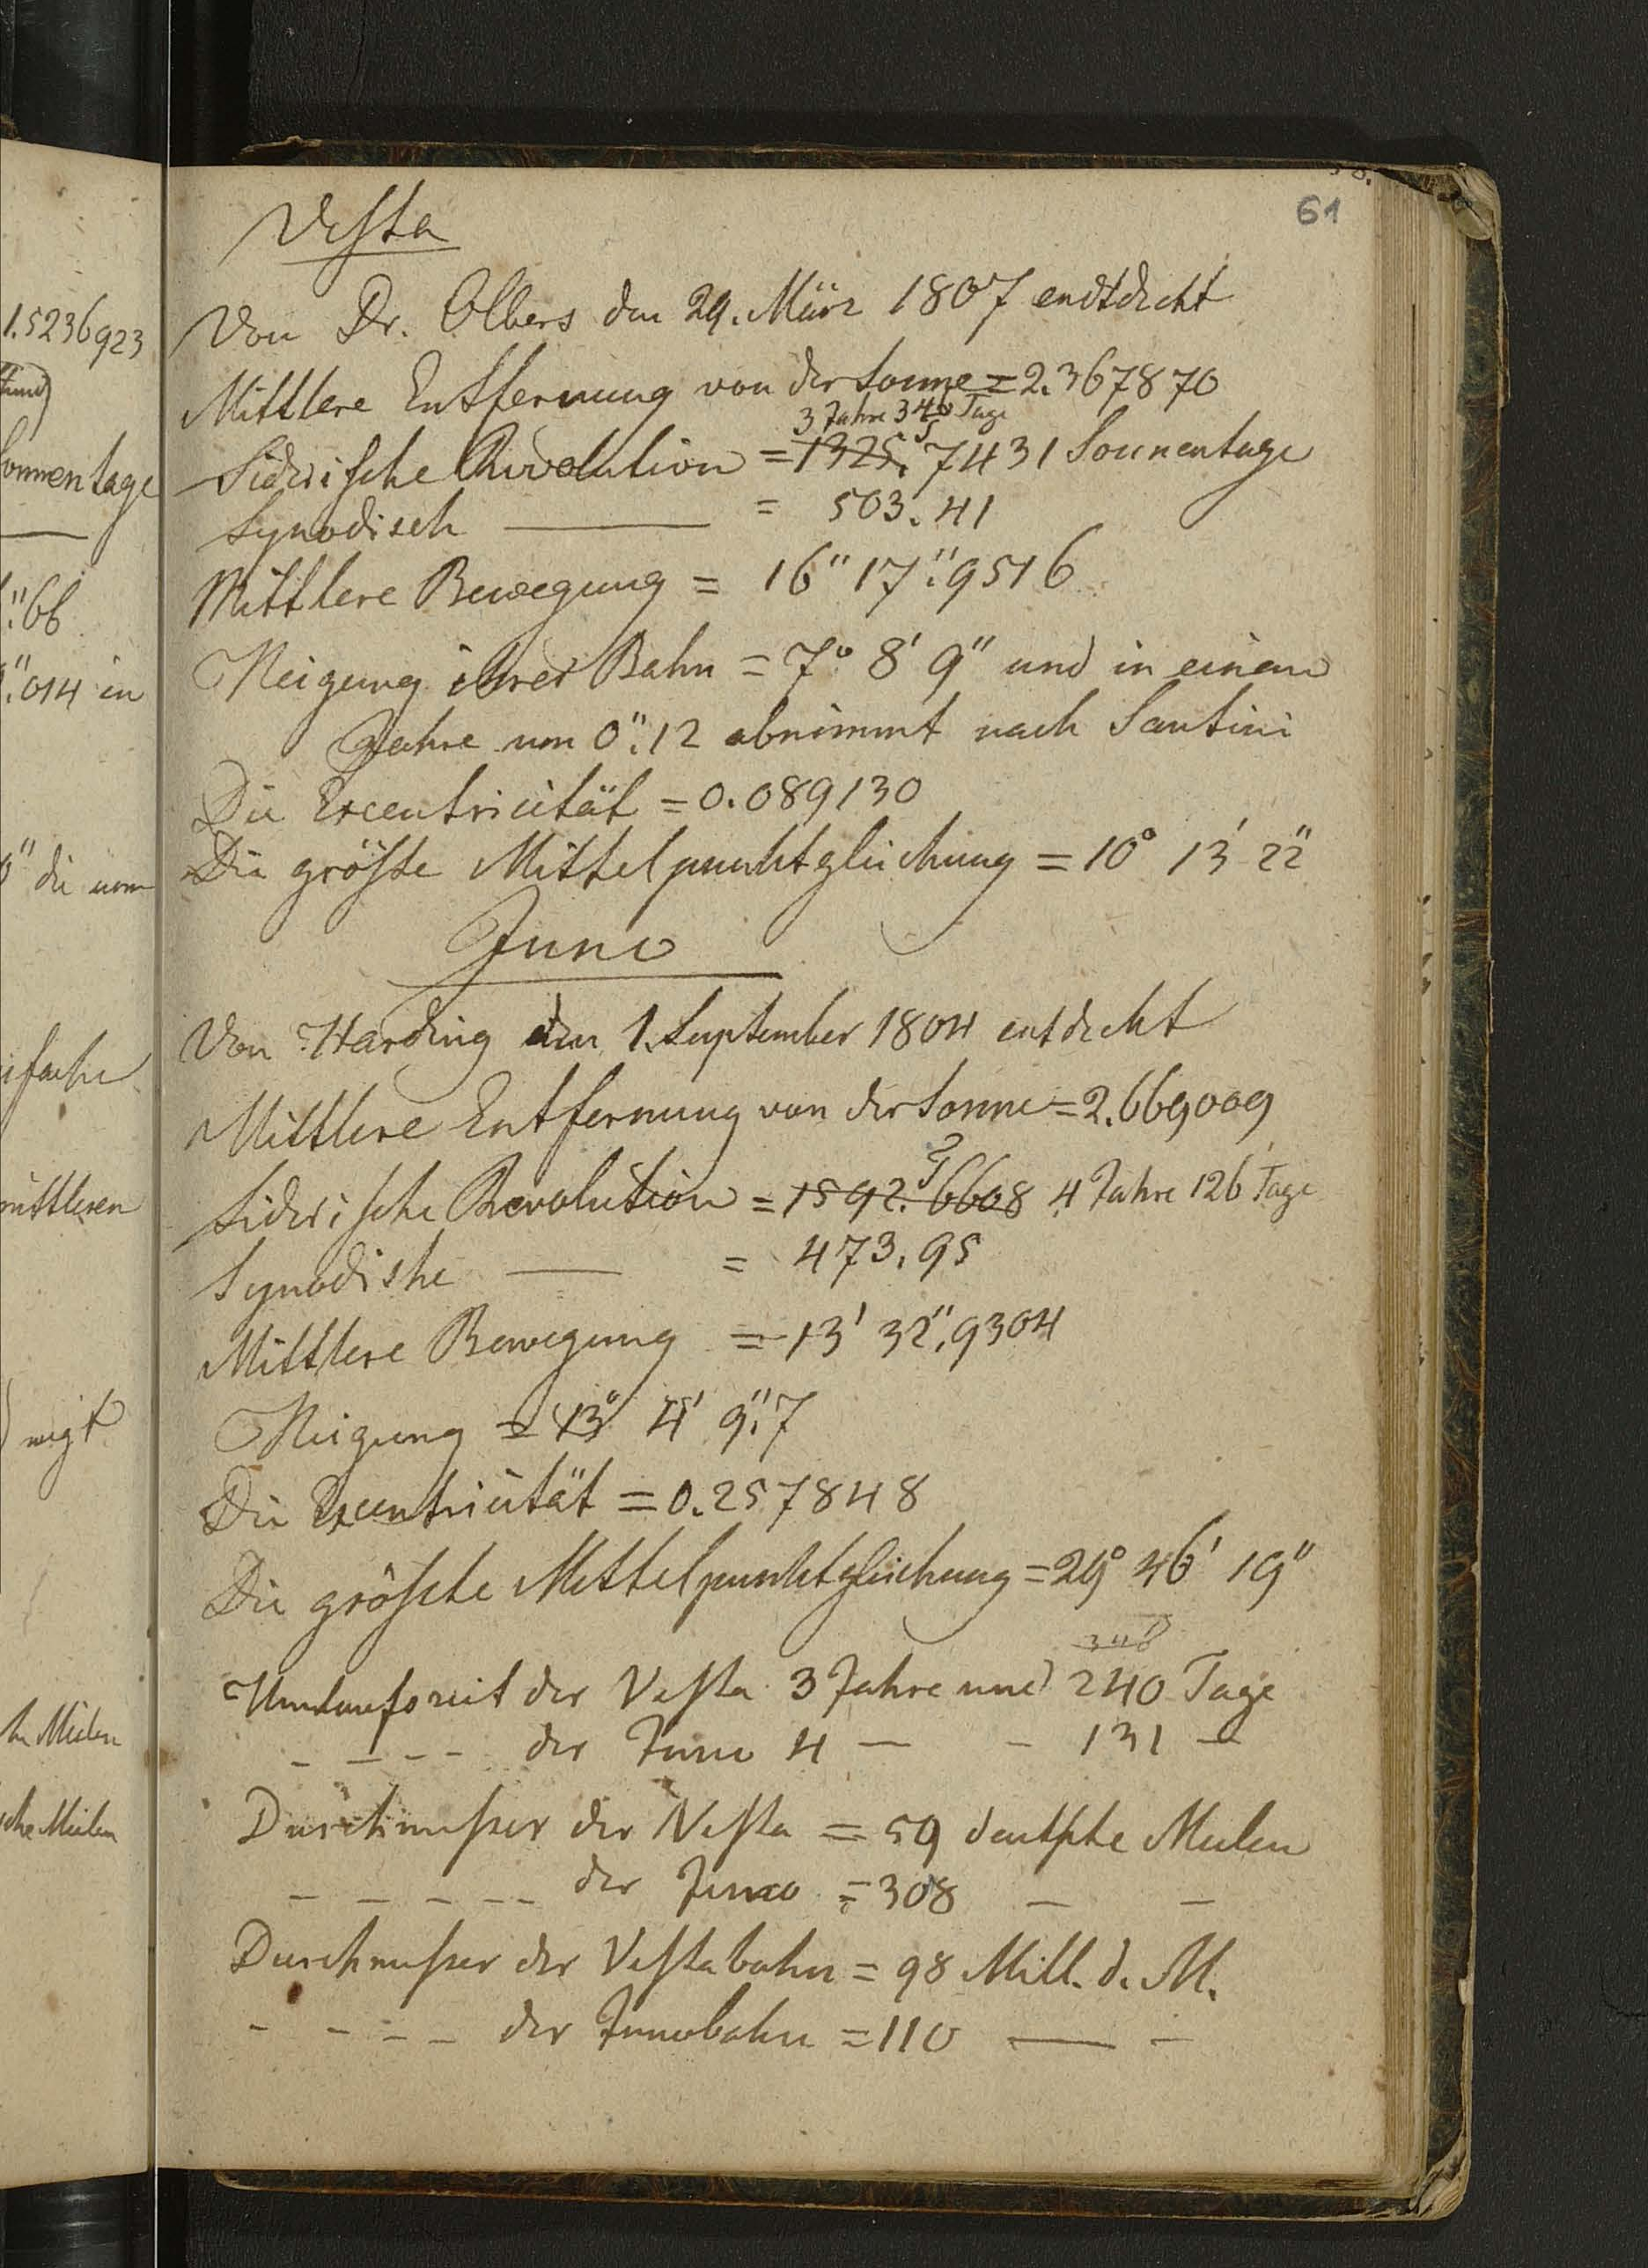 61
Vesta
Von Dr. Olbers den 29. März 1807 endtdeckt
Mittlere Entfernung von der Sonne = 2.367870
3 Jahre 340 Tage
Siderische Revolution = 1325.7431 Sonnentage
Synodisch — = 503.41
Mittlere Bewegung = 16" 17".9516
Neigung ihrer Bahn = 7° 8' 9" und in einem
Jahre um 0".12 abnimmt nach Santini
Die Excentricität = 0.089130
Die gröste Mittelpunktgleichung = 10° 13' 22"
Juno
Von Harding den 1. September 1804 entdeckt
Mittlere Entfernung von der Sonne = 2.669009
Siderische Revolution = 1592.6608 4 Jahre 126 Tage
Synodishe — = 473.95
Mittlere Bewegung = 13' 32".9304
Neigung = 13° 4' 9".7
Die Excentricität = 0.257848
Die gröschte Mittelpunktgleichung = 29° 46' 19"
Umlaufszeit der Vesta 3 Jahre und 240 Tage
- - - - der Juno 4 — - 131 —
Durchmesser der Vesta = 59 deutsche Meilen
- - - - - der Juno = 308 — —
Durchmesser der Vestabahn = 98 Mill. d. M.
- - - - der Junobahn = 110 — -
1.5236923
Sonnentage
".66
".014 in
0" die um
mittleren
Meilen
Meilen